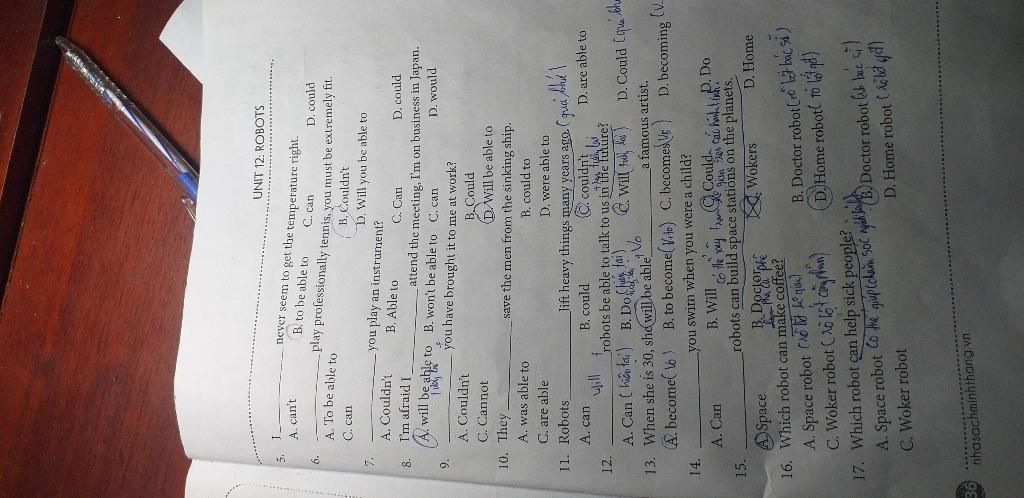 UNIT 12: ROBOTS
5. I ______ never seem to get the temperature right.
A. can't B. to be able to C. can D. could
6. ______ play professionally tennis, you must be extremely fit.
A. To be able to B. Couldn't
C. can D. Will you be able to
7. ______ you play an instrument?
A. Couldn't B. Able to C. Can D. could
8. I'm afraid I ______ attend the meeting, I'm on business in Japan.
A. will be able to B. won't be able to C. can D. would
9. ______ you have brought it to me at work?
A. Couldn't B. Could
C. Cannot D. Will be able to
10. They ______ save the men from the sinking ship.
A. was able to B. could to
C. are able D. were able to
11. Robots ______ lift heavy things many years ago. (quá khứ)
A. can B. could C. couldn't D. are able to
will
12. ______ robots be able to talk to us in the future?
A. Can (hiện tại) B. Do C. Will D. Could (quá
13. When she is 30, she will be able ______ a famous artist.
A. become (Vo) B. to become (Vto) C. becomes (Vs) D. becoming (V
14. ______ you swim when you were a child?
A. Can B. Will C. Could D. Do
15. ______ robots can build space stations on the planets.
A. Space B. Doctor C. Wokers D. Home
16. Which robot can make coffee?
A. Space robot B. Doctor robot (rô bốt bác sĩ)
C. Woker robot D. Home robot
17. Which robot can help sick people?
A. Space robot B. Doctor robot
C. Woker robot D. Home robot
36
nhasachminhthang.vn